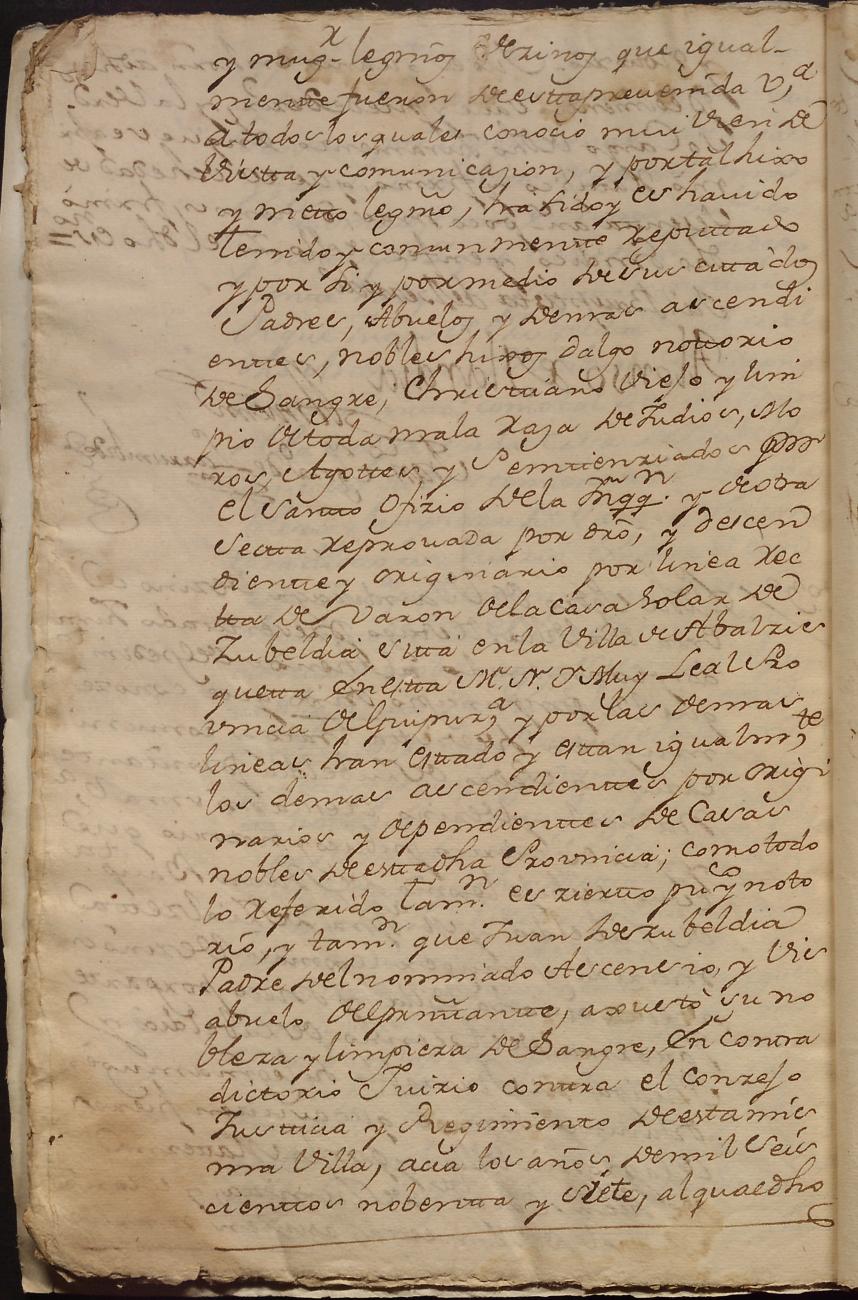 y mug.ͬ legmõs Vezinos que igual-
mente fueron de esta prevenida V.ª
a todos los quales conocio mui bien de
vista y comunicazion, y por tal hixo
y nieto legmõ, ha sido y es havido
tenido y comunmente Reputado
y por si y por medio de sus cittados
Padres, Abuelos y demas ascendi
entes, nobles hijos dalgo notorio
de Sangre, Christiano Viejo y lim
pio de toda mala Raza de Judios, Mo
ros, Agottes, y Sentenziados por
el santto Ofizio de la Ynqq.ⁿ y de otra
Sectta Reprovada por drõ, y descen
diente y originario por linea Rec
tta de Varon de la Cassa Solar de
Zubeldia sitta en la Villa de Abalzis
quetta en estta M. N. Y Muy Leal Pro
vincia de Guipuz.ª y por las demas
lineas han estado y estan igualm.te
los demas ascendientes por origi
narios y dependientes de Casas
nobles de esta dha Provincia; como todo
lo Referido tam.ⁿ es zierto pu.co y noto
rio, y tam.ⁿ que Juan de Zubeldia
Padre del nominado Ascencio, y Vis
abuelo del pressentante, axusto su no
bleza y limpieza de Sangre, en contra
dictorio Juizio contra el Conzejo
Justicia y Regimiento de esta mis
ma Villa, acia los años de mil Seis
cientos nobentta y siete, al qual dho